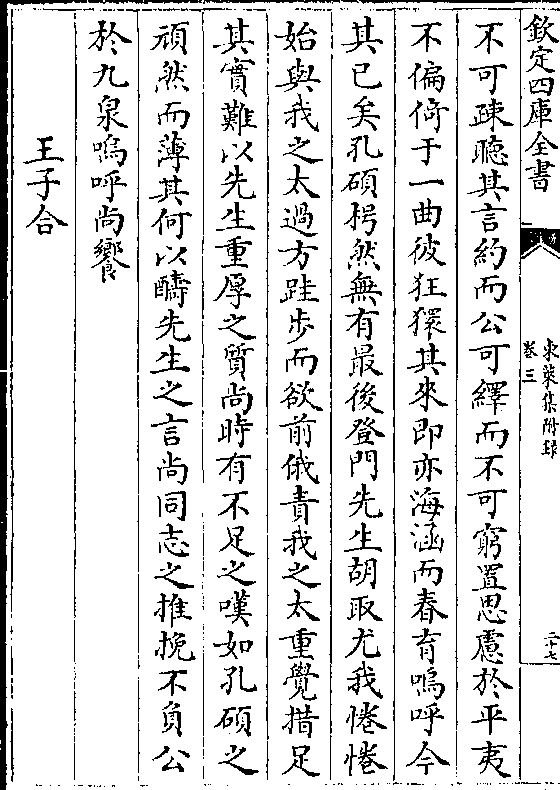 欽定四庫全書
東萊集附録
卷三
二十七
不可疎聽其言約而公可繹而不可窮置思慮於平夷
不偏倚于一曲彼狂獧其來即亦海涵而春育嗚呼今
其已矣孔碩枵然無有最後登門先生胡取尤我惓惓
始與我之太過方跬步而欲前俄責我之太重覺措足
其實難以先生重厚之質尚時有不足之嘆如孔碩之
頑然而薄其何以酬先生之言尚同志之推挽不負公
於九泉嗚呼尚饗
王子合